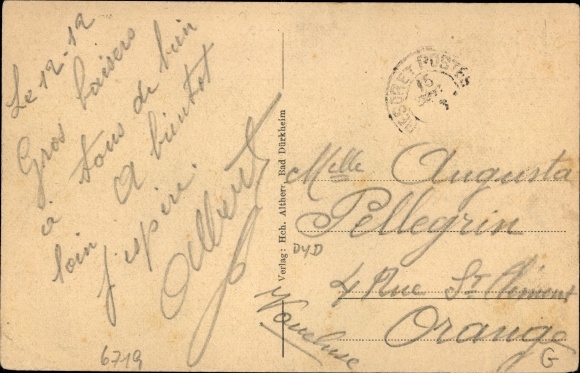 Le 12-12
Gros baisers
à tous de bien
loin A bientot
j'espère.
Albert
Verlag: Hch. Alther, Bad Dürkheim
TRESOR ET POSTES
15
Melle Augusta
Pellegrin
D4D
4 Rue St Clément
Orange
Vaucluse
6719
G